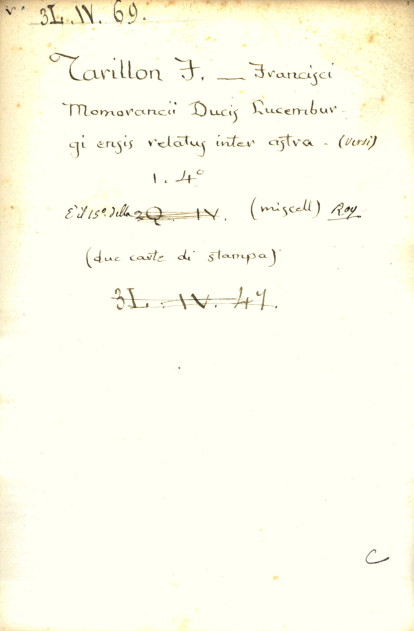 3L.IV.69.
Tarillon F. — Francisci
Momorancii Ducis Lucembur-
gi ensis relatus inter astra - (Versi)
1. 4°
E' il 15° della 2Q. IV. (miscell) Roy
(due carte di stampa)
3L. IV. 47.
C